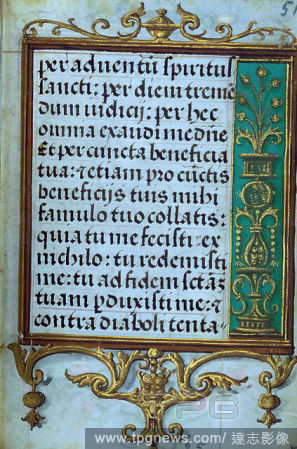 5
per aduentū spiritus
sancti: per diem treme
dum iudicij: per hec
omnia exaudi me dn̄e
Et per cuncta beneficia
tua: ⁊ etiam pro cūctis
beneficijs tuis mihi
famulo tuo collatis:
quia tu me fecisti ex
nichilo: tu redemisti
me: tu ad fidem sctā̄
tuam ꝑduxisti me: ⁊
contra diaboli tenta-
PG
www.tpgnews.com / 達志影像